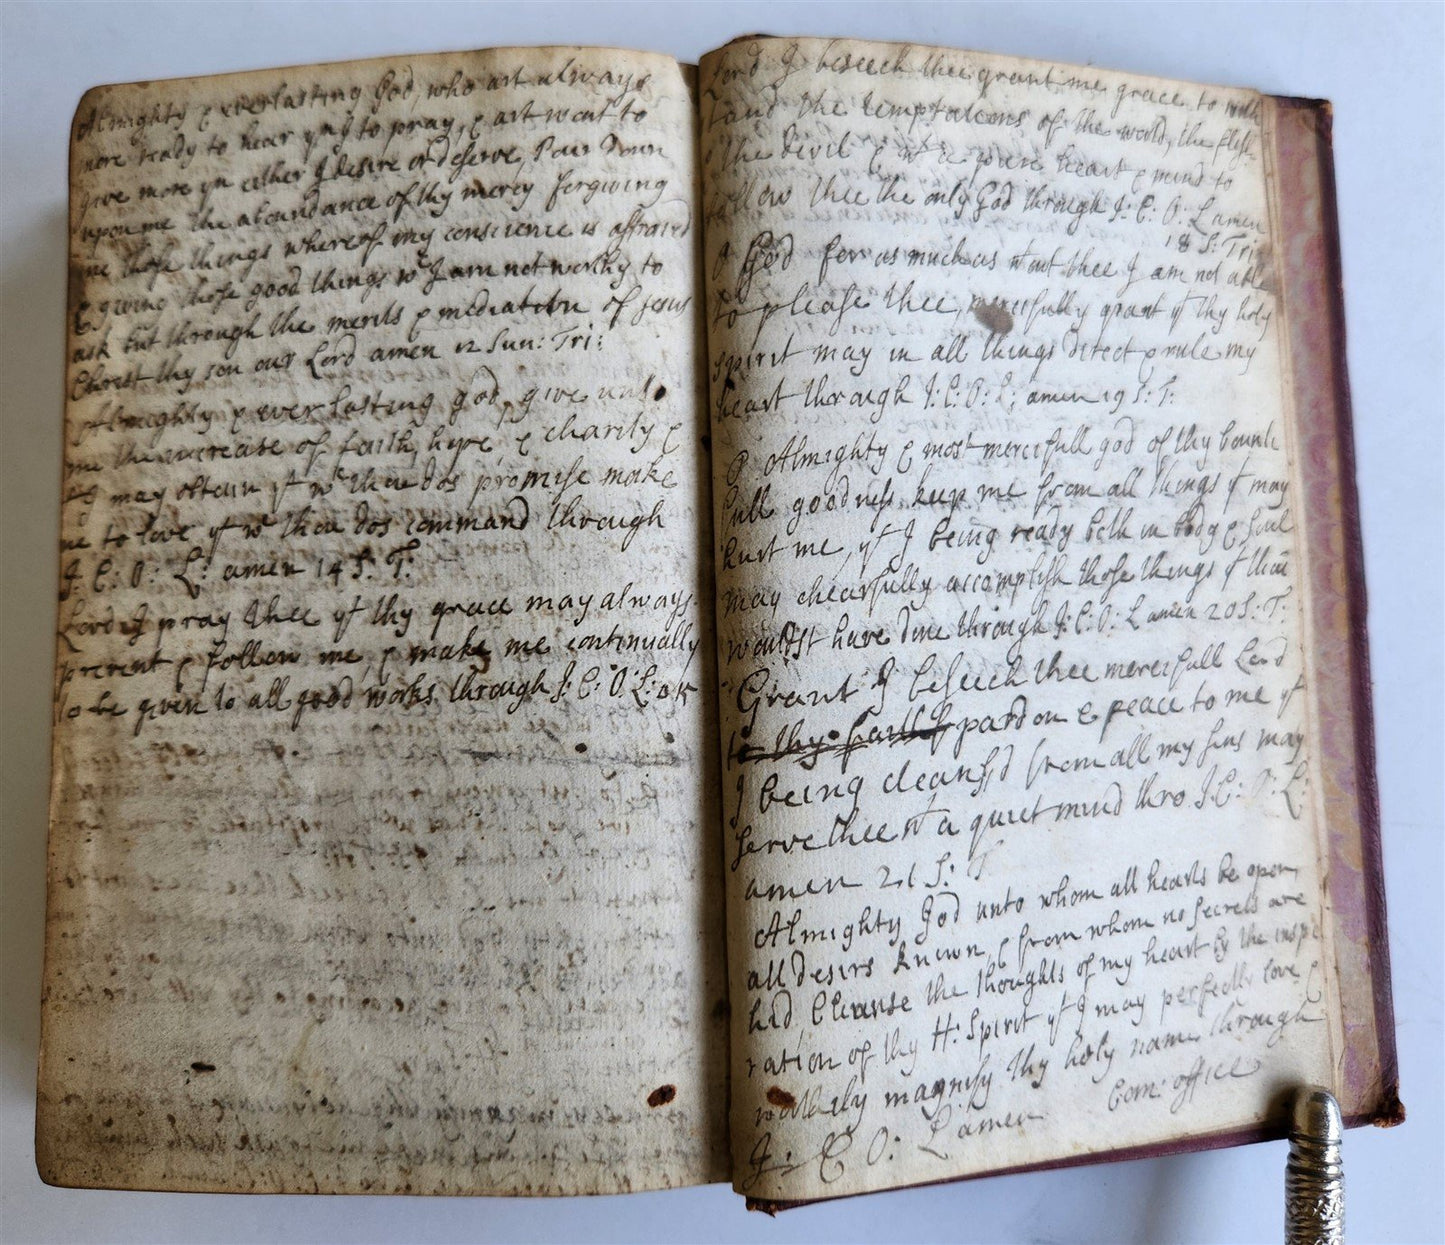 Almighty & everlasting God, who art always
more ready to hear yn I to pray, & art wont to
give more yn either I desire or deserve, Pour Down
upon me the abundance of thy mercy forgiving
me those things whereof my conscience is affraid
& giving those good things wch I am not worthy to
ask but through the merits & mediation of Jesus
Christ thy son our Lord amen 12 Sun: Tri:
Almighty & everlasting god, give unto
me the increase of faith, hope & charity &
yt I may obtain yt wch thou dos promise make
me to love yt wch thou dos command through
J: C: O: L: amen 14 S: T:
Lord I pray thee yt thy grace may always
prevent & follow me, & make me continually
to be given to all good works through J: C: O: L: a
Lord I beseech thee grant me grace to with
stand the temptations of the world, the flesh
& the Devil & wth a pure heart & mind to
follow thee the only God through J: C: O: L amen
18 S: Tri:
O God for as much as wtout thee I am not able
to please thee, mercifully grant yt thy holy
spirit may in all things direct & rule my
heart through J: C: O: L: amen 19 S: T:
O Almighty & most mercifull god of thy bounti
full goodness keep me from all things yt may
hurt me, yt I being ready both in body & soul
may chearfully accomplish those things yt thou
wouldst have done through J: C: O: L amen 20 S: T:
Grant I beseech thee mercifull Lord
to thy faithf pardon & peace to me yt
I being cleansd from all my sins may
serve thee wth a quiet mind thro J: C: O: L:
amen 21 S: T
Almighty God unto whom all hearts be open
all desirs known, & from whom no secrets are
hid, Cleanse the thoughts of my heart by the inspi
ration of thy H: Spirit yt I may perfectly love &
worthily magnify thy holy name through
J: C O: L amen Com: office